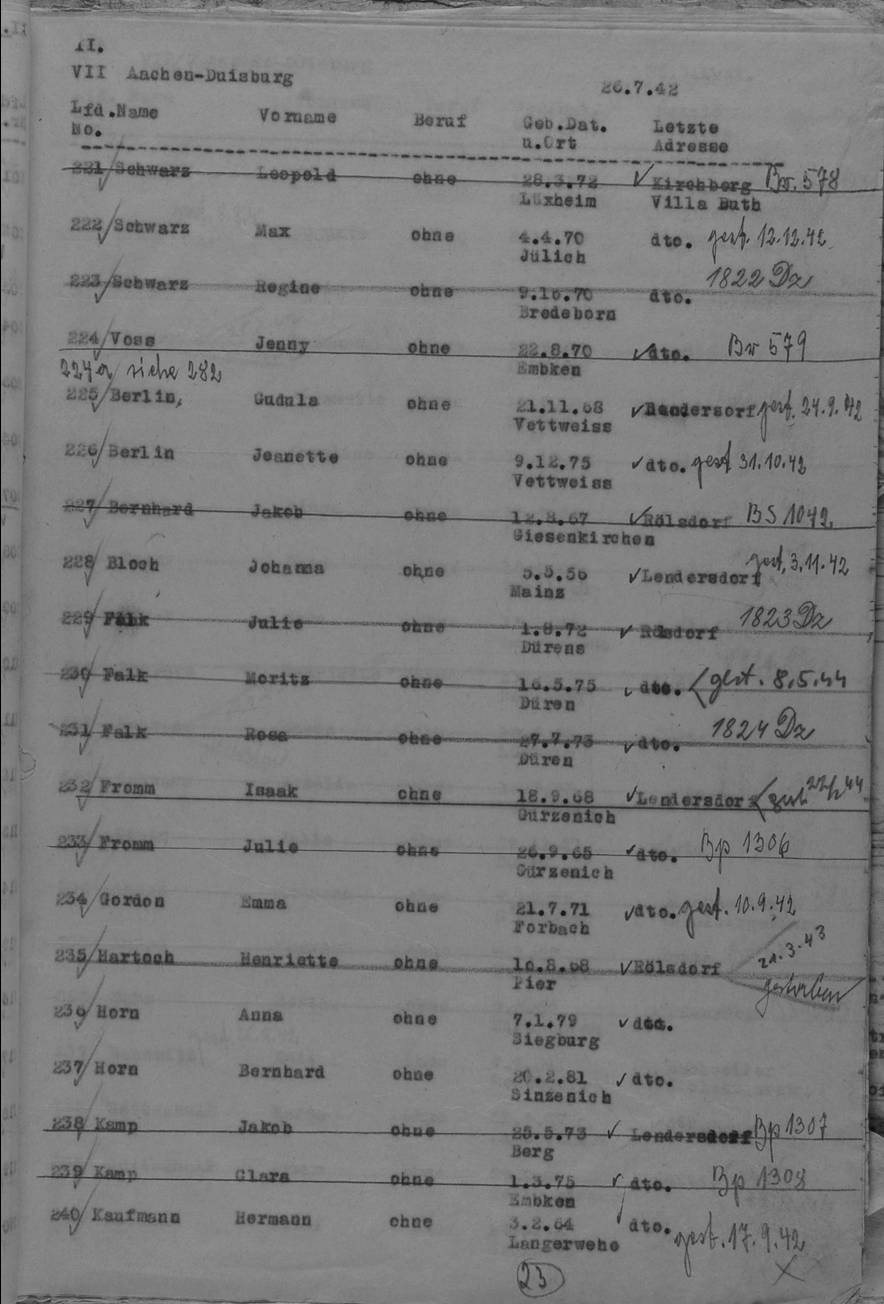 II.
VII Aachen-Duisburg
26.7.42
Lfd.Name Vorname Beruf Geb.Dat. Letzte
No. u.Ort Adresse
221 Schwarz Leopold ohne 28.3.72 Kirchberg Bw. 578
Lüxheim Villa Buth
222 Schwarz Max ohne 4.4.70 dto. gest. 12.12.42
Jülich
223 Schwarz Regine ohne 9.10.70 dto. 1822 Dz
Bredeborn
224 Voss Jenny ohne 22.8.70 dto. Bw 579
Embken
224a siehe 282
225 Berlin, Gudula ohne 21.11.68 gest. 24.9.42
Vettweiss
226 Berlin Jeanette ohne 9.12.75 dto. gest 31.10.42
Vettweiss
227 Bernhard Jakob ohne 12.8.67 Rölsdorf BS 1042
Giesenkirchen
228 Bloch Johanna ohne 5.5.56 Lendersdorf gest, 3.11.42
Mainz
229 Falk Julie ohne 1.8.72 Rölsdorf 1823 Dz
Dürens
230 Falk Moritz ohne 16.5.75 dto. gest. 8.5.44
Düren
231 Falk Rosa ohne 27.7.73 dto. 1824 Dz
Düren
232 Fromm Isaak ohne 18.9.68 Lendersdorf gest 22/2 44
Gürzenich
233 Fromm Julie ohne 26.9.65 dto. Bp 1306
Gürzenich
234 Gordon Emma ohne 21.7.71 dto. gest. 10.9.42
Forbach
235 Hartoch Henriette ohne 10.8.68 Rölsdorf 21.3.43
Pier gestorben
236 Horn Anna ohne 7.1.79 dto.
Siegburg
237 Horn Bernhard ohne 20.2.81 dto.
Sinzenich
238 Kamp Jakob ohne 25.5.73 Lendersdorf Bp 1307
Berg
239 Kamp Clara ohne 1.3.75 dto. Bp 1308
Embken
240 Kaufmann Hermann ohne 3.2.64 dto. gest. 17.9.42
Langerwehe
23